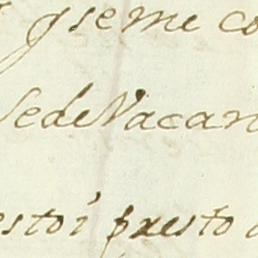 q seme co
SedeVacan
esto i puesto a